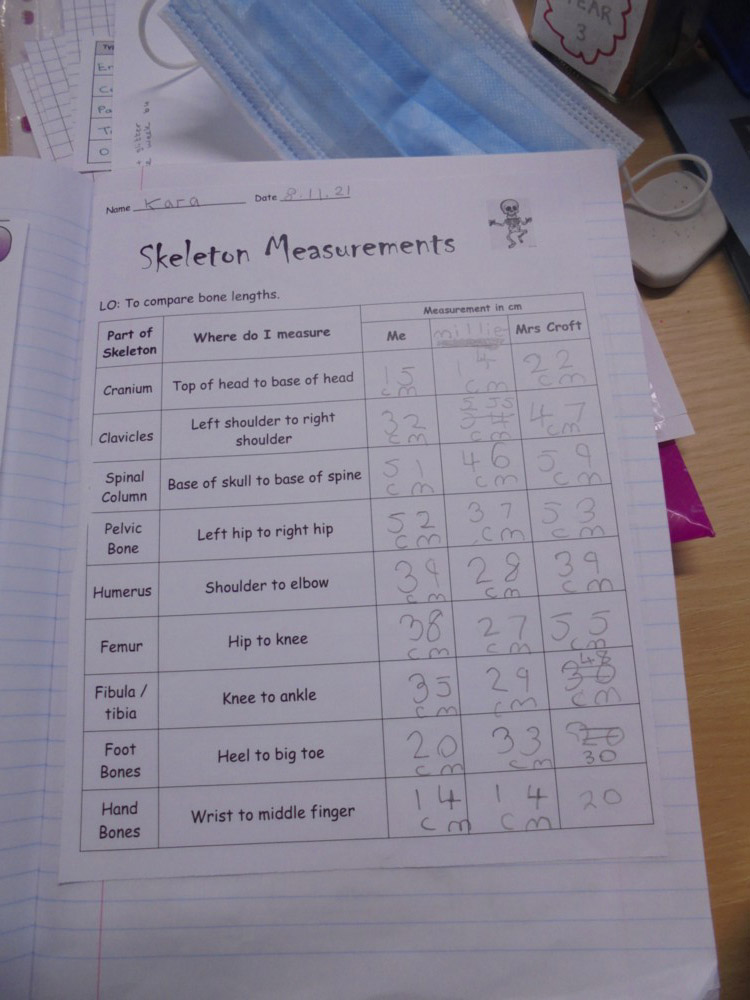 YEAR
3
Name Kara Date 8.11.21
Skeleton Measurements
LO: To compare bone lengths.
Part of Skeleton Where do I measure Measurement in cm
Me millie Mrs Croft
Cranium Top of head to base of head 15 cm 14 cm 22 cm
Clavicles Left shoulder to right shoulder 32 cm cm 47 cm
Spinal Column Base of skull to base of spine 51 cm 46 cm 59 cm
Pelvic Bone Left hip to right hip 52 cm 37 cm 53 cm
Humerus Shoulder to elbow 39 cm 28 cm 39 cm
Femur Hip to knee 38 cm 27 cm 55 cm
Fibula / tibia Knee to ankle 35 cm 29 cm 48 cm
Foot Bones Heel to big toe 20 cm 33 cm 30
Hand Bones Wrist to middle finger 14 cm 14 cm 20